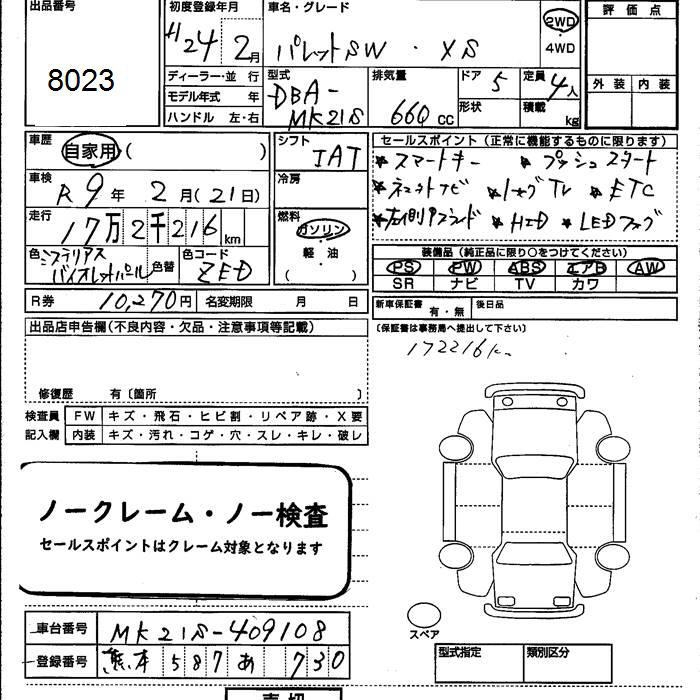 出品番号
8023
初度登録年月
H24 2月
車名・グレード
パレットSW ・ XS
2WD
・
4WD
評価点
外装 内装
ディーラー・並 行
モデル年式 年
ハンドル 左・右
型式
DBA-
MK21S
排気量
660 cc
ドア
5
形状
定員
4人
積載
kg
車歴
自家用 ( )
車検
R 9年 2月 (21日)
走行
17万2千216 km
色
ミステリアス
バイオレットパール
色替
色コード
ZED
シフト
IAT
冷房
燃料
ガソリン
軽・油
( )
セールスポイント (正常に機能するものに限ります)
★スマートキー ★プッシュスタート
★ネットナビ ★ワンセグTV ★ETC
★左側Pスランド ★HID ★LEDフォグ
装備品 (純正品に限り○をつけてください)
PS PW ABS エアB AW
SR ナビ TV カワ
R券 10,270円
名変期限 月 日
新車保証書
有・無
後日品
(保証書は事務局へ提出して下さい)
172216k
出品店申告欄 (不良内容・欠品・注意事項等記載)
修復歴 有〔箇所 〕
検査員
記入欄
FW キズ・飛石・ヒビ割・リペア跡・X要
内装 キズ・汚れ・コゲ・穴・スレ・キレ・破レ
ノークレーム・ノー検査
セールスポイントはクレーム対象となります
車台番号 MK21S-409108
登録番号 熊本 587 あ 730
スペア
型式指定
類別区分